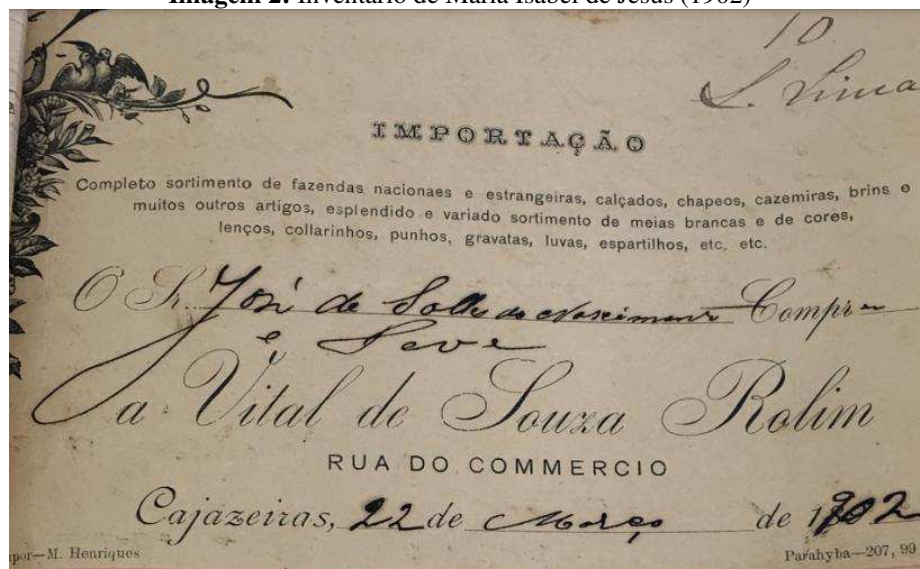 Imagem 2: Inventário de Maria Isabel de Jesus (1902)
10
S. Lima
IMPORTAÇÃO
Completo sortimento de fazendas nacionaes e estrangeiras, calçados, chapeos, cazemiras, brins e
muitos outros artigos, esplendido e variado sortimento de meias brancas e de cores,
lenços, collarinhos, punhos, gravatas, luvas, espartilhos, etc. etc.
O Sr. José de Salles do Nascimento Comprou
e Deve
a Vital de Souza Rolim
RUA DO COMMERCIO
Cajazeiras, 22 de Março de 1902
por—M. Henriques
Parahyba—207, 99